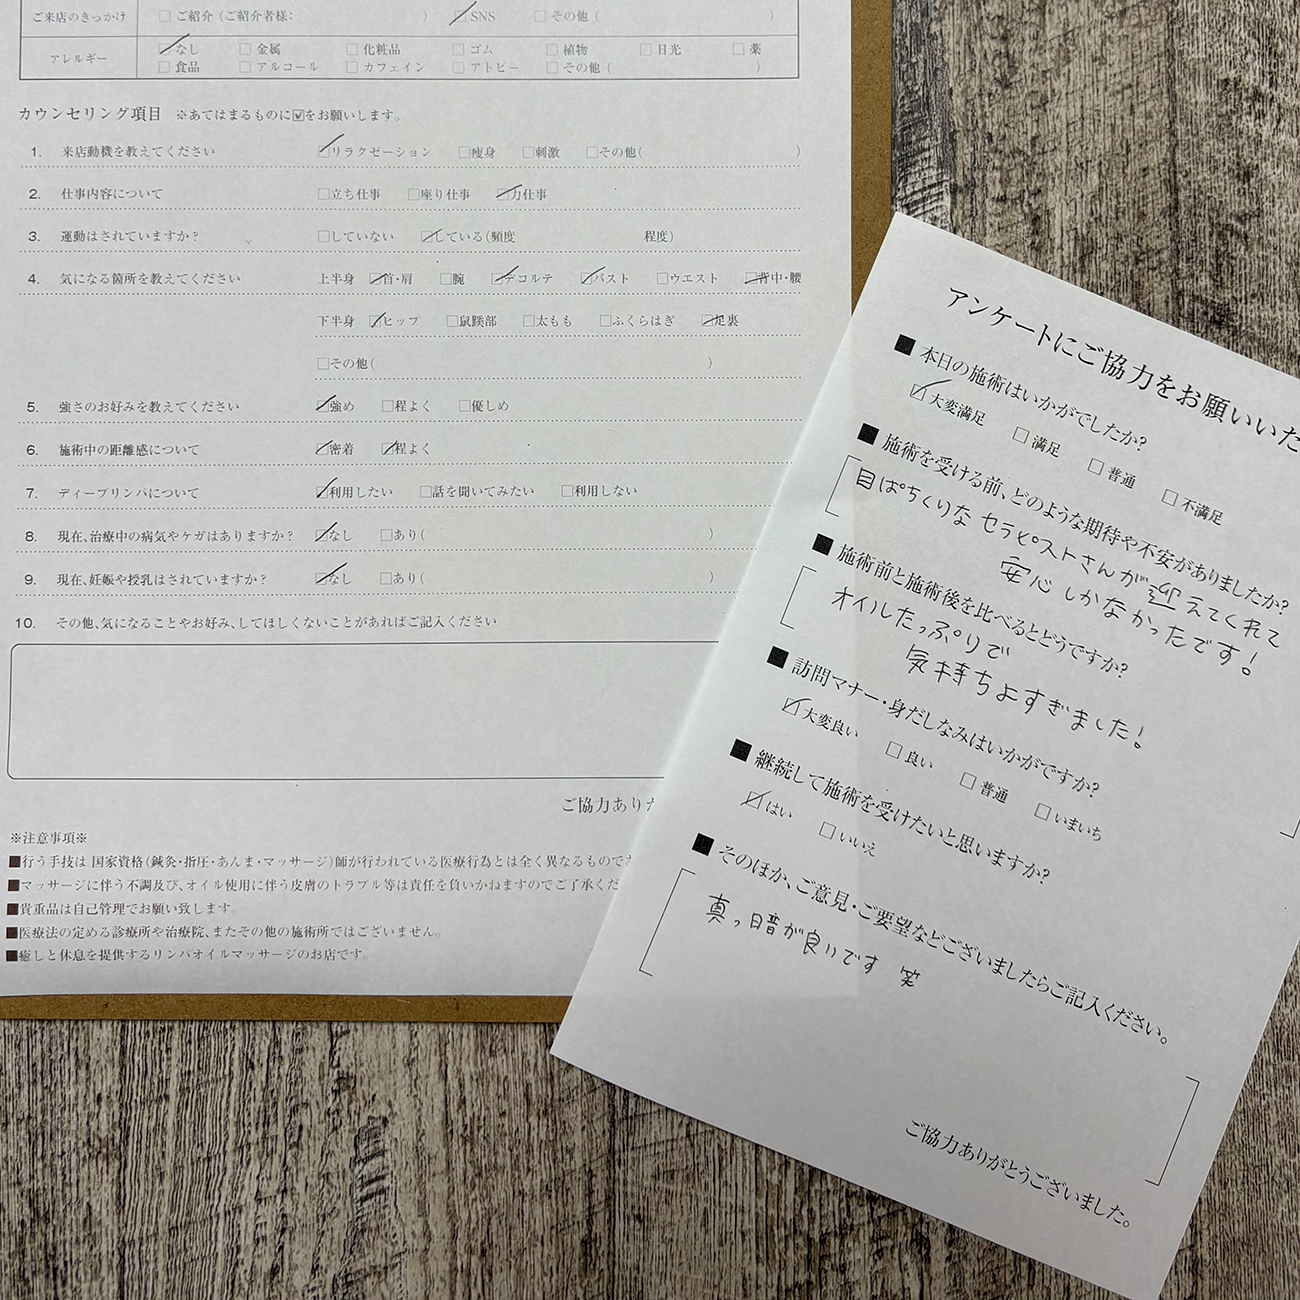 ご来店のきっかけ □ご紹介（ご紹介者様： ） ☑SNS □その他（ ）
アレルギー ☑なし □金属 □化粧品 □ゴム □植物 □日光 □薬
□食品 □アルコール □カフェイン □アトピー □その他（ ）
カウンセリング項目 ※あてはまるものに☑をお願いします。
1. 来店動機を教えてください ☑リラクゼーション □痩身 □刺激 □その他( )
2. 仕事内容について □立ち仕事 □座り仕事 ☑力仕事
3. 運動はされていますか？ □していない ☑している(頻度 程度)
4. 気になる箇所を教えてください 上半身 ☑首・肩 □腕 ☑デコルテ ☑バスト □ウエスト ☑背中・腰
下半身 ☑ヒップ □鼠蹊部 □太もも □ふくらはぎ ☑足裏
□その他( )
5. 強さのお好みを教えてください ☑強め □程よく □優しめ
6. 施術中の距離感について ☑密着 ☑程よく
7. ディープリンパについて ☑利用したい □話を聞いてみたい □利用しない
8. 現在、治療中の病気やケガはありますか？ ☑なし □あり( )
9. 現在、妊娠や授乳はされていますか？ ☑なし □あり( )
10. その他、気になることやお好み、してほしくないことがあればご記入ください
ご協力あり
※注意事項※
■行う手技は 国家資格(鍼灸・指圧・あんま・マッサージ)師が行われている医療行為とは全く異なるもので
■マッサージに伴う不調及び、オイル使用に伴う皮膚のトラブル等は責任を負いかねますのでご了承くだ
■貴重品は自己管理でお願い致します。
■医療法の定める診療所や治療院、またその他の施術所ではございません。
■癒しと休息を提供するリンパオイルマッサージのお店です。
アンケートにご協力をお願いいた
■ 本日の施術はいかがでしたか？
☑大変満足 □満足 □普通 □不満足
■ 施術を受ける前、どのような期待や不安がありましたか？
目ぱちくりな セラピストさんが迎えてくれて
安心しかなかったです！
■ 施術前と施術後を比べるとどうですか？
オイルたっぷりで
気持ちよすぎました！
■ 訪問マナー・身だしなみはいかがですか？
☑大変良い □良い □普通 □いまいち
■ 継続して施術を受けたいと思いますか？
☑はい □いいえ
■ そのほか、ご意見・ご要望などございましたらご記入ください。
真っ暗が良いです 笑
ご協力ありがとうございました。